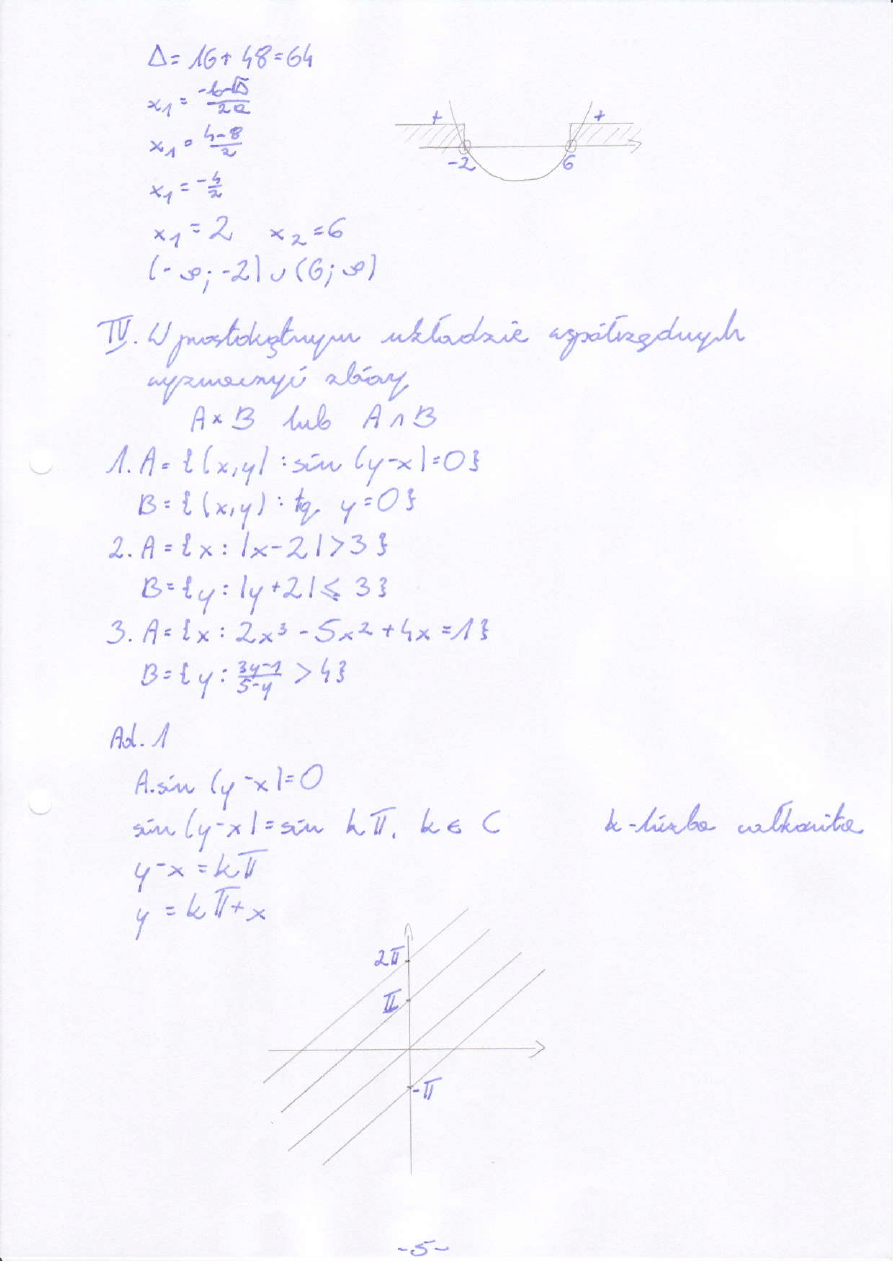 Δ = 16 + 48 = 64
x₁ = (-b-√Δ)/2a
x₁ = (4-8)/2
x₁ = -4/2
x₁ = 2 x₂ = 6
(-∞; -2) ∪ (6; ∞)
+ +
-2 6
IV. W prostokątnym układzie współrzędnych
wyznaczyć zbiory
A × B lub A ∩ B
1. A = {(x,y) : sin (y-x) = 0}
B = {(x,y) : tg y = 0}
2. A = {x : |x-2| > 3}
B = {y : |y+2| ≤ 3}
3. A = {x : 2x³ - 5x² + 4x = 1}
B = {y : (3y-1)/(5-y) > 4}
Ad. 1
A. sin (y-x) = 0
sin (y-x) = sin kπ, k ∈ C k - liczba całkowita
y-x = kπ
y = kπ + x
2π
π
-π
-5-